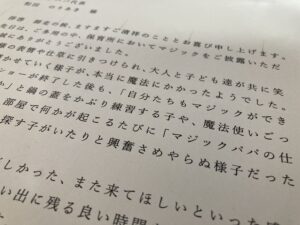 代表
様
拝啓 師走の候、ますますご清祥のこととお喜び申し上げます。
先日は、ご多用の中、保育所においてマジックをご披露いただ
ありがとうございました。
の表情や仕草に引きつけられ、大人と子ども達が共に笑
かせていく様子が、本当に魔法にかかったようでした。
ショーが終了した後も、「自分たちもマジックができ
」と鍋の蓋をかぶり練習する子や、魔法使いごっ
部屋で何かが起こるたびに「マジックパパの仕
探す子がいたりと興奮さめやらぬ様子だった
しかった、また来てほしいといった
い出に残る良い時間